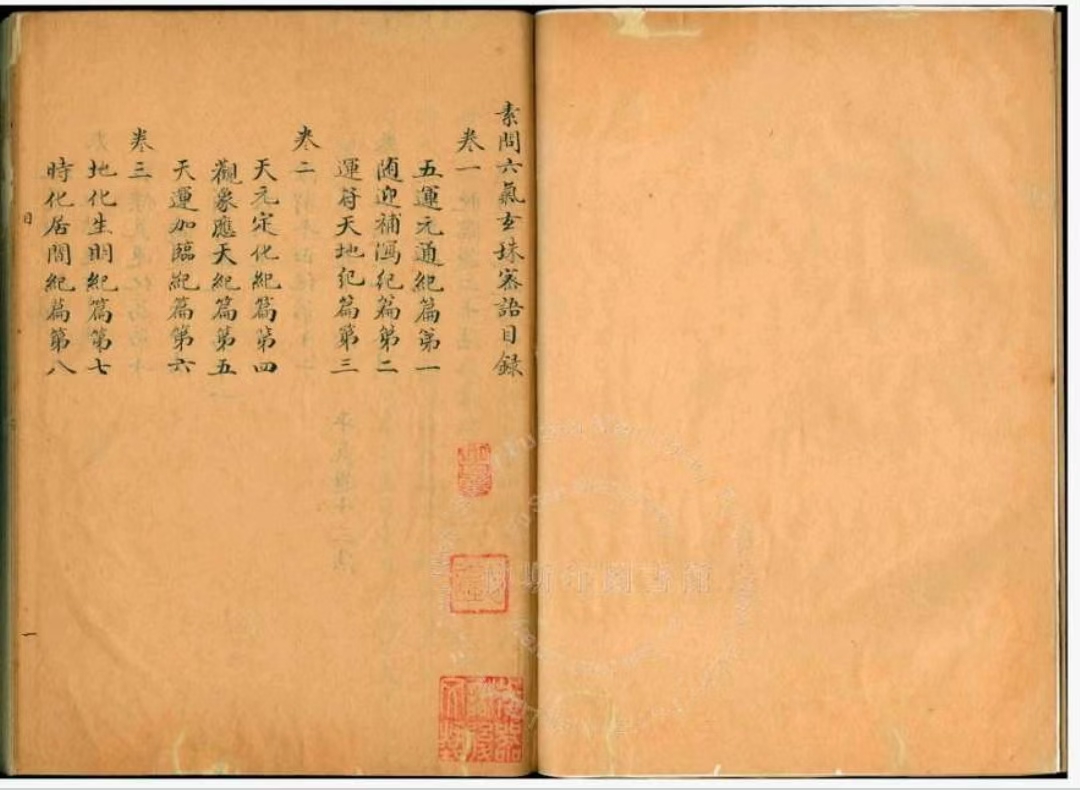 素問六氣玄珠密語目録
卷一
五運元通紀篇第一
随迎補瀉紀篇第二
運符天地紀篇第三
卷二
天元定化紀篇第四
觀象應天紀篇第五
天運加臨紀篇第六
卷三
地化生明紀篇第七
時化居間紀篇第八
目
一